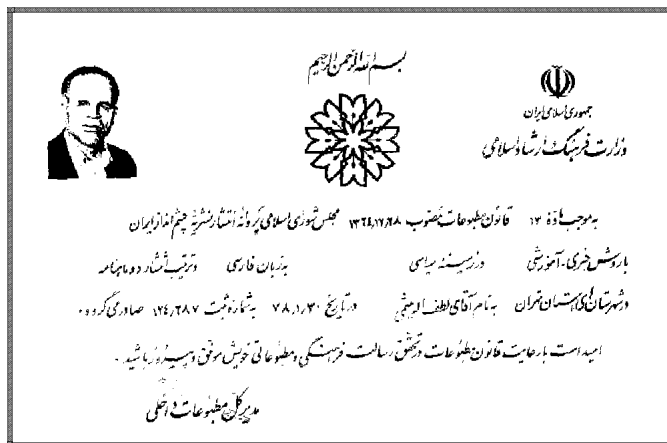 بسم الله الرحمن الرحیم
جمهوری اسلامی ایران
وزارت فرهنگ و ارشاد اسلامی
به موجب ماده ۱۳ قانون مطبوعات مصوب ۱۳۶۴٫۱۲٫۲۸ مجلس شورای اسلامی پروانه انتشار نشریه چشم انداز ایران
با روش خبری - آموزشی در زمینه سیاسی به زبان فارسی و ترتیب انتشار دوماهنامه
در شهرستان‌های استان تهران به نام آقای لطف اله میثمی در تاریخ ۷۸٫۱٫۳۰ به شماره ثبت ۱۲۴٫۶۸۷ صادر می گردد.
امید است با رعایت قانون مطبوعات در تحقق رسالت فرهنگی و مطبوعاتی خویش موفق و پیروز باشید.
مدیر کل مطبوعات داخلی